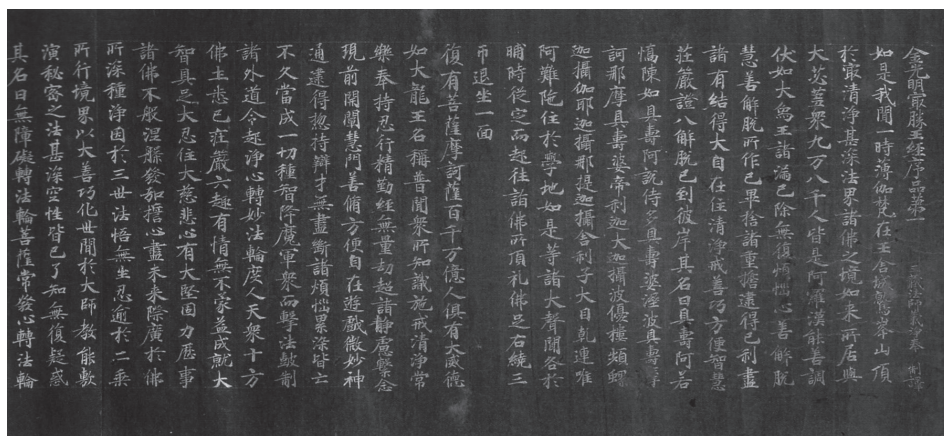 金光明最勝王經序品第一 三藏法師義淨奉 制譯
如是我聞一時薄伽梵在王舍城鷲峯山頂
於最清淨甚深法界諸佛之境如來所居與
大苾芻衆九万八千人皆是阿羅漢能善調
伏如大象王諸漏已除無復煩惱心善解脫
慧善解脫所作已畢捨諸重擔逮得己利盡
諸有結得大自在住清淨戒善巧方便智慧
莊嚴證八解脫已到彼岸其名曰具壽阿若
憍陳如具壽阿說侍多具壽婆溼波具壽摩
訶那摩具壽婆帝利迦大迦攝波優樓頻螺
迦攝伽耶迦攝那提迦攝舍利子大目乾連唯
阿難陁住於學地如是等諸大聲聞各於
晡時從定而起往詣佛所頂礼佛足右繞三
帀退坐一面
復有菩薩摩訶薩百千万億人俱有大威德
如大龍王名稱普聞衆所知識施戒清淨常
樂奉持忍行精勤經無量劫超諸靜慮繫念
現前開闡慧門善脩方便自在遊戲微妙神
通逮得惣持辯才無盡斷諸煩惱累染皆亡
不久當成一切種智降魔軍衆而擊法鼓制
諸外道令起淨心轉妙法輪度人天衆十方
佛土悉已莊嚴六趣有情無不蒙益成就大
智具足大忍住大慈悲心有大堅固力歷事
諸佛不般涅槃發弘誓心盡未來際廣於佛
所深種淨因於三世法悟無生忍逾於二乘
所行境界以大善巧化世間於大師教能敷
演秘密之法甚深空性皆已了知無復疑惑
其名曰無障礙轉法輪菩薩常發心轉法輪